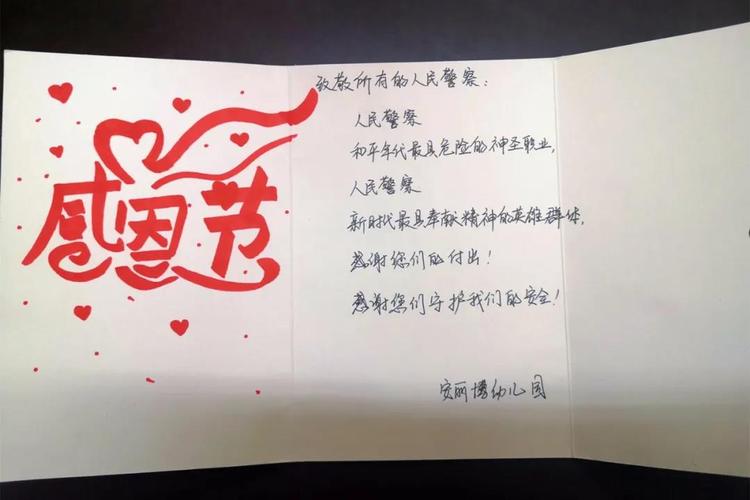 感恩节
致敬所有的人民警察：
人民警察
和平年代最具危险的神圣职业，
人民警察
新时代最具奉献精神的英雄群体，
感谢您们的付出！
感谢您们守护我们的安全！
安丽博幼儿园